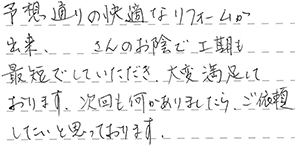 予想通りの快適なリフォームが
出来、　　さんのお陰で工期も
最短でしていただき、大変満足して
おります。次回も何かありましたら、ご依頼
したいと思っております。